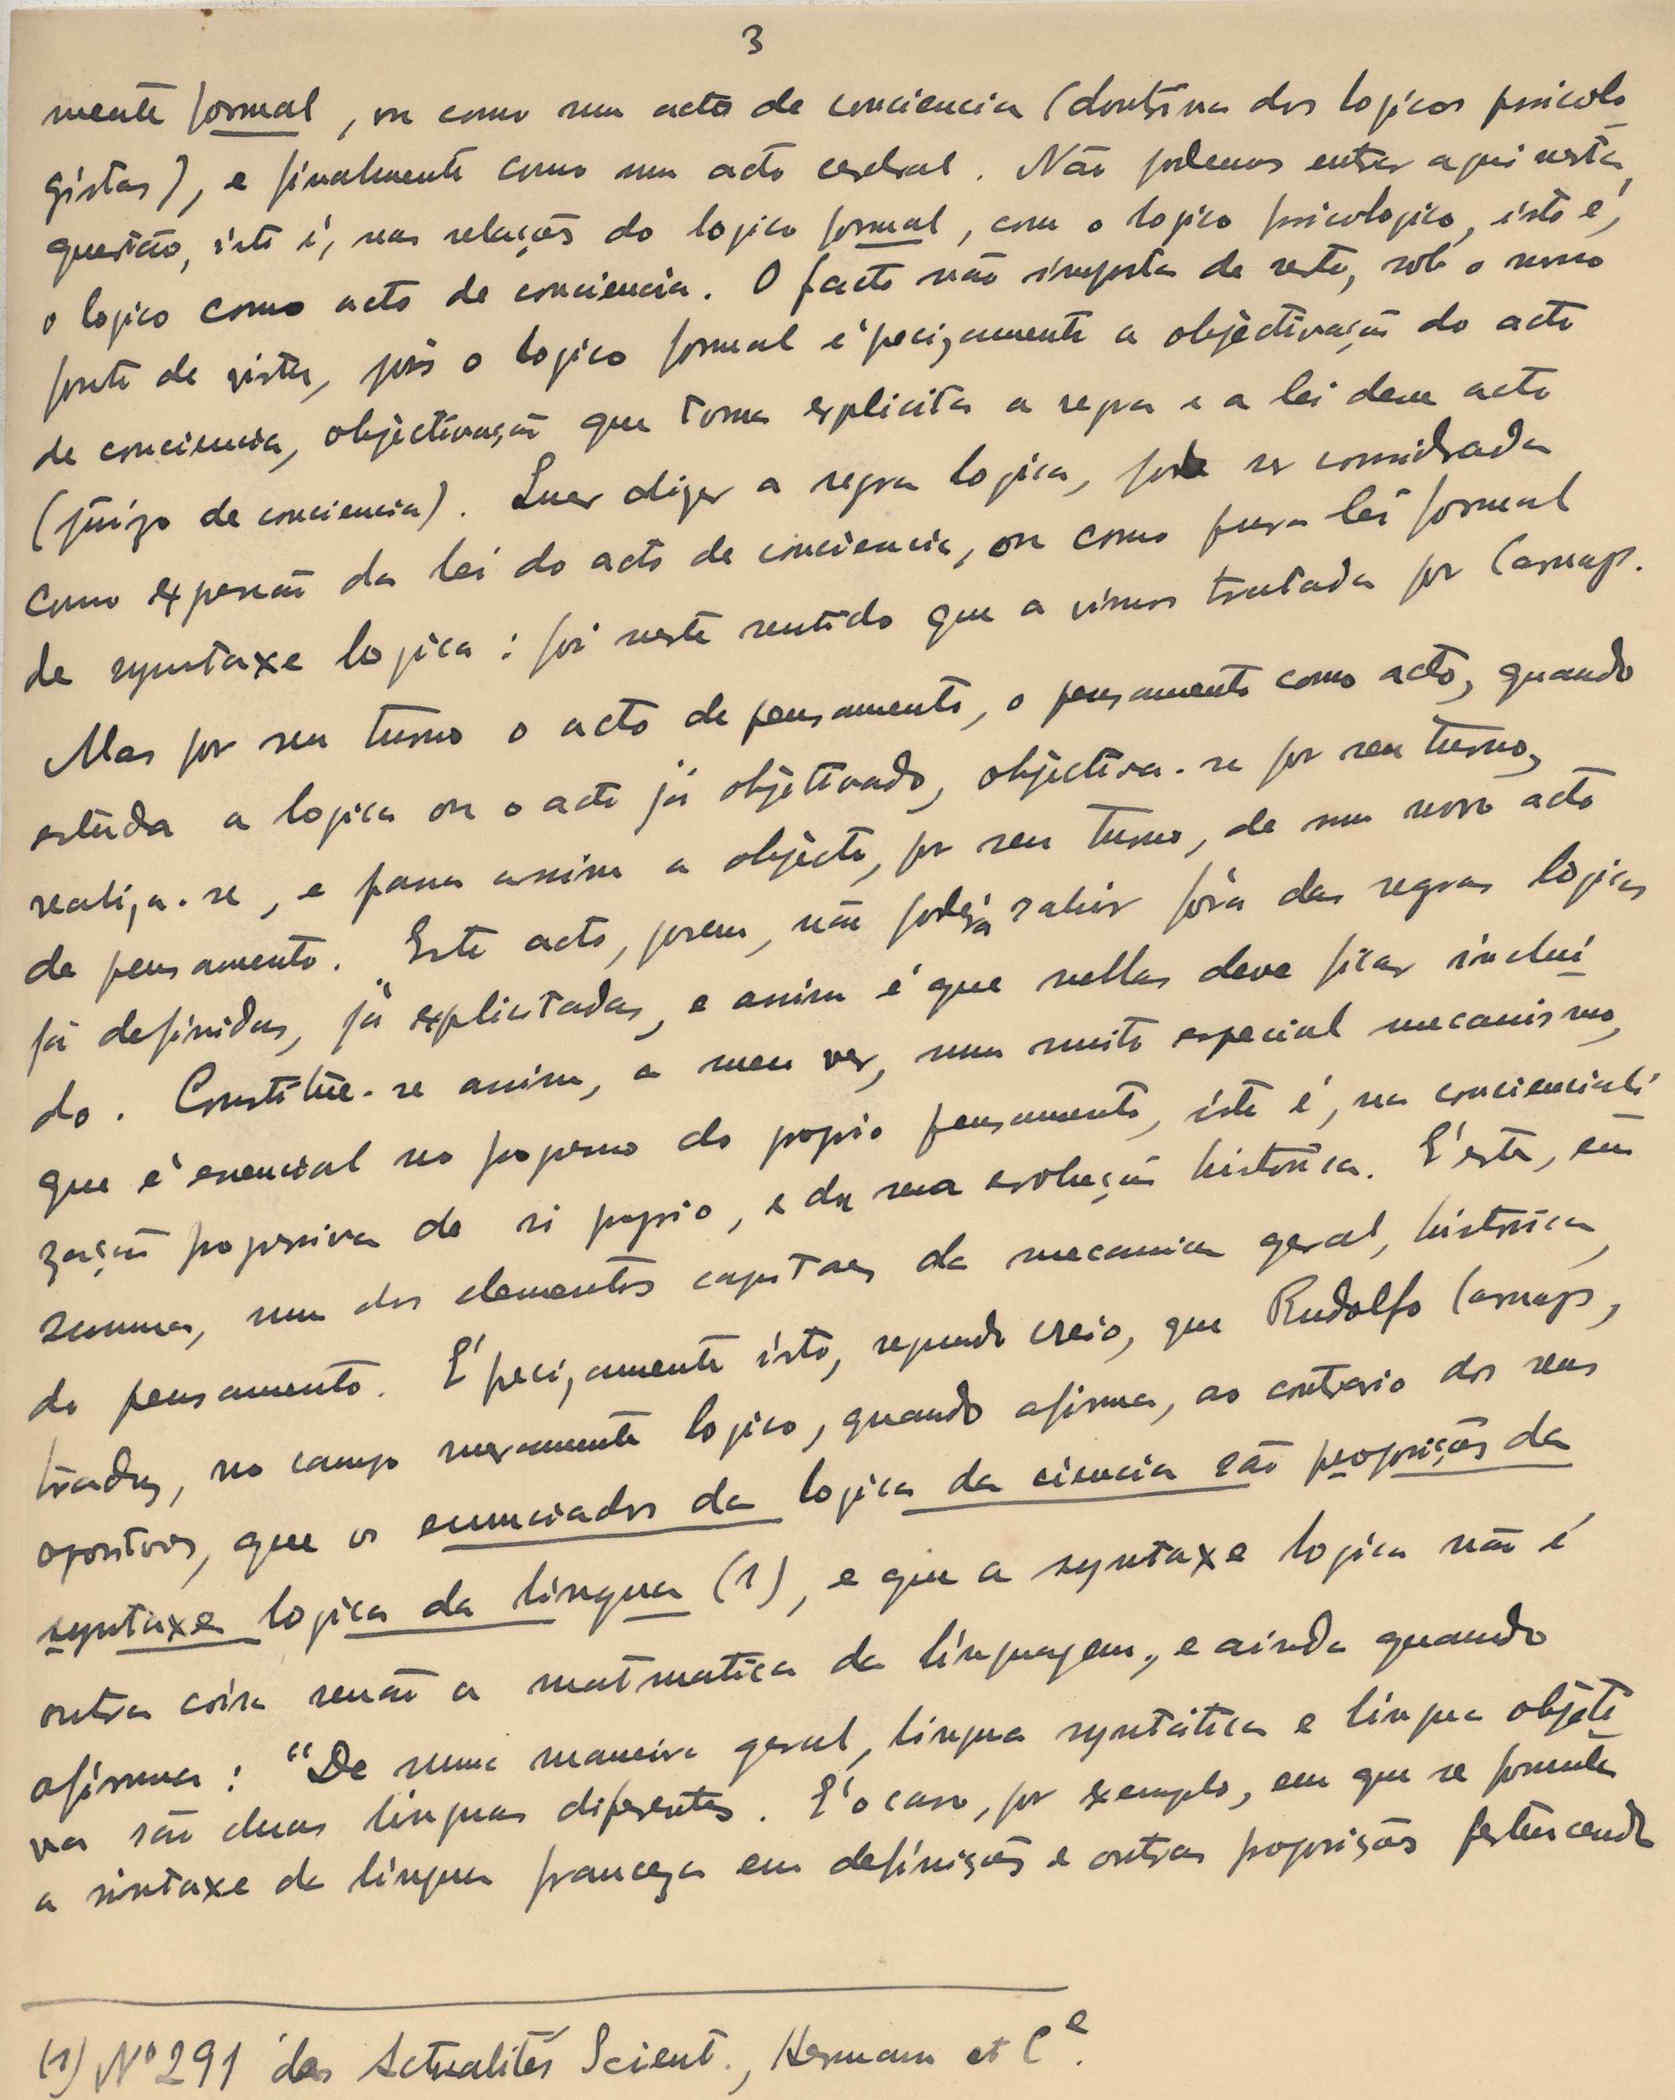 3
mente formal, ou como um acto de conciencia (doutrina dos logicos psicolo
gistas), e finalmente como um acto cerebral. Não podemos entrar aqui nesta
questão, isto é, nas relações do logico formal, com o logico psicologico, isto é,
o logico como acto de conciencia. O facto não importa de resto, sob o nosso
ponto de vista, pois o logico formal é precizamente a objèctivação do acto
de conciencia, objèctivação que torna explicita a regra e a lei desse acto
(juizo de conciencia). Quer dizer a regra logica, pode ser considerada
como expressão da lei do acto de conciencia, ou como pura lei formal
de syntaxe logica: foi neste sentido que a vimos tratada por Carnap.
Mas por seu turno o acto de pensamento, o pensamento como acto, quando
estuda a logica ou o acto já objètivado, objèctiva-se por seu turno,
realiza-se, e passa assim a objècto, por seu turno, de um novo acto
de pensamento. Este acto, porem, não poderá sahir fóra das regras lògicas
já definidas, já explicitadas, e assim é que nellas deve ficar inclui
do. Constitúe-se assim, a meu ver, num muito especial mecanismo,
que é essencial no progresso do proprio pensamento, isto é, na concienciali
zação progressiva de si proprio, e da sua evolução historica. É este, em
summa, um dos elementos capitaes da mecanica geral, historica,
do pensamento. É precizamente isto, segundo creio, que Rudolfo Carnap,
traduz, no campo meramente logico, quando afirma, ao contrario dos seus
opositores, que os enunciados da logica da ciencia são proposições da
syntaxe logica da lingua (1), e que a syntaxe logica não é
outra coisa senão a matmatica da linguagem, e ainda quando
afirma: "De uma maneira geral, lingua syntática e lingua objèti
va são duas linguas diferentes. É o caso, por exemplo, em que se formula
a sintaxe da lingua franceza em definições e outras proposições pertencendo
(1) Nº 291 das Actualités Scient., Hermann et Cᵉ.